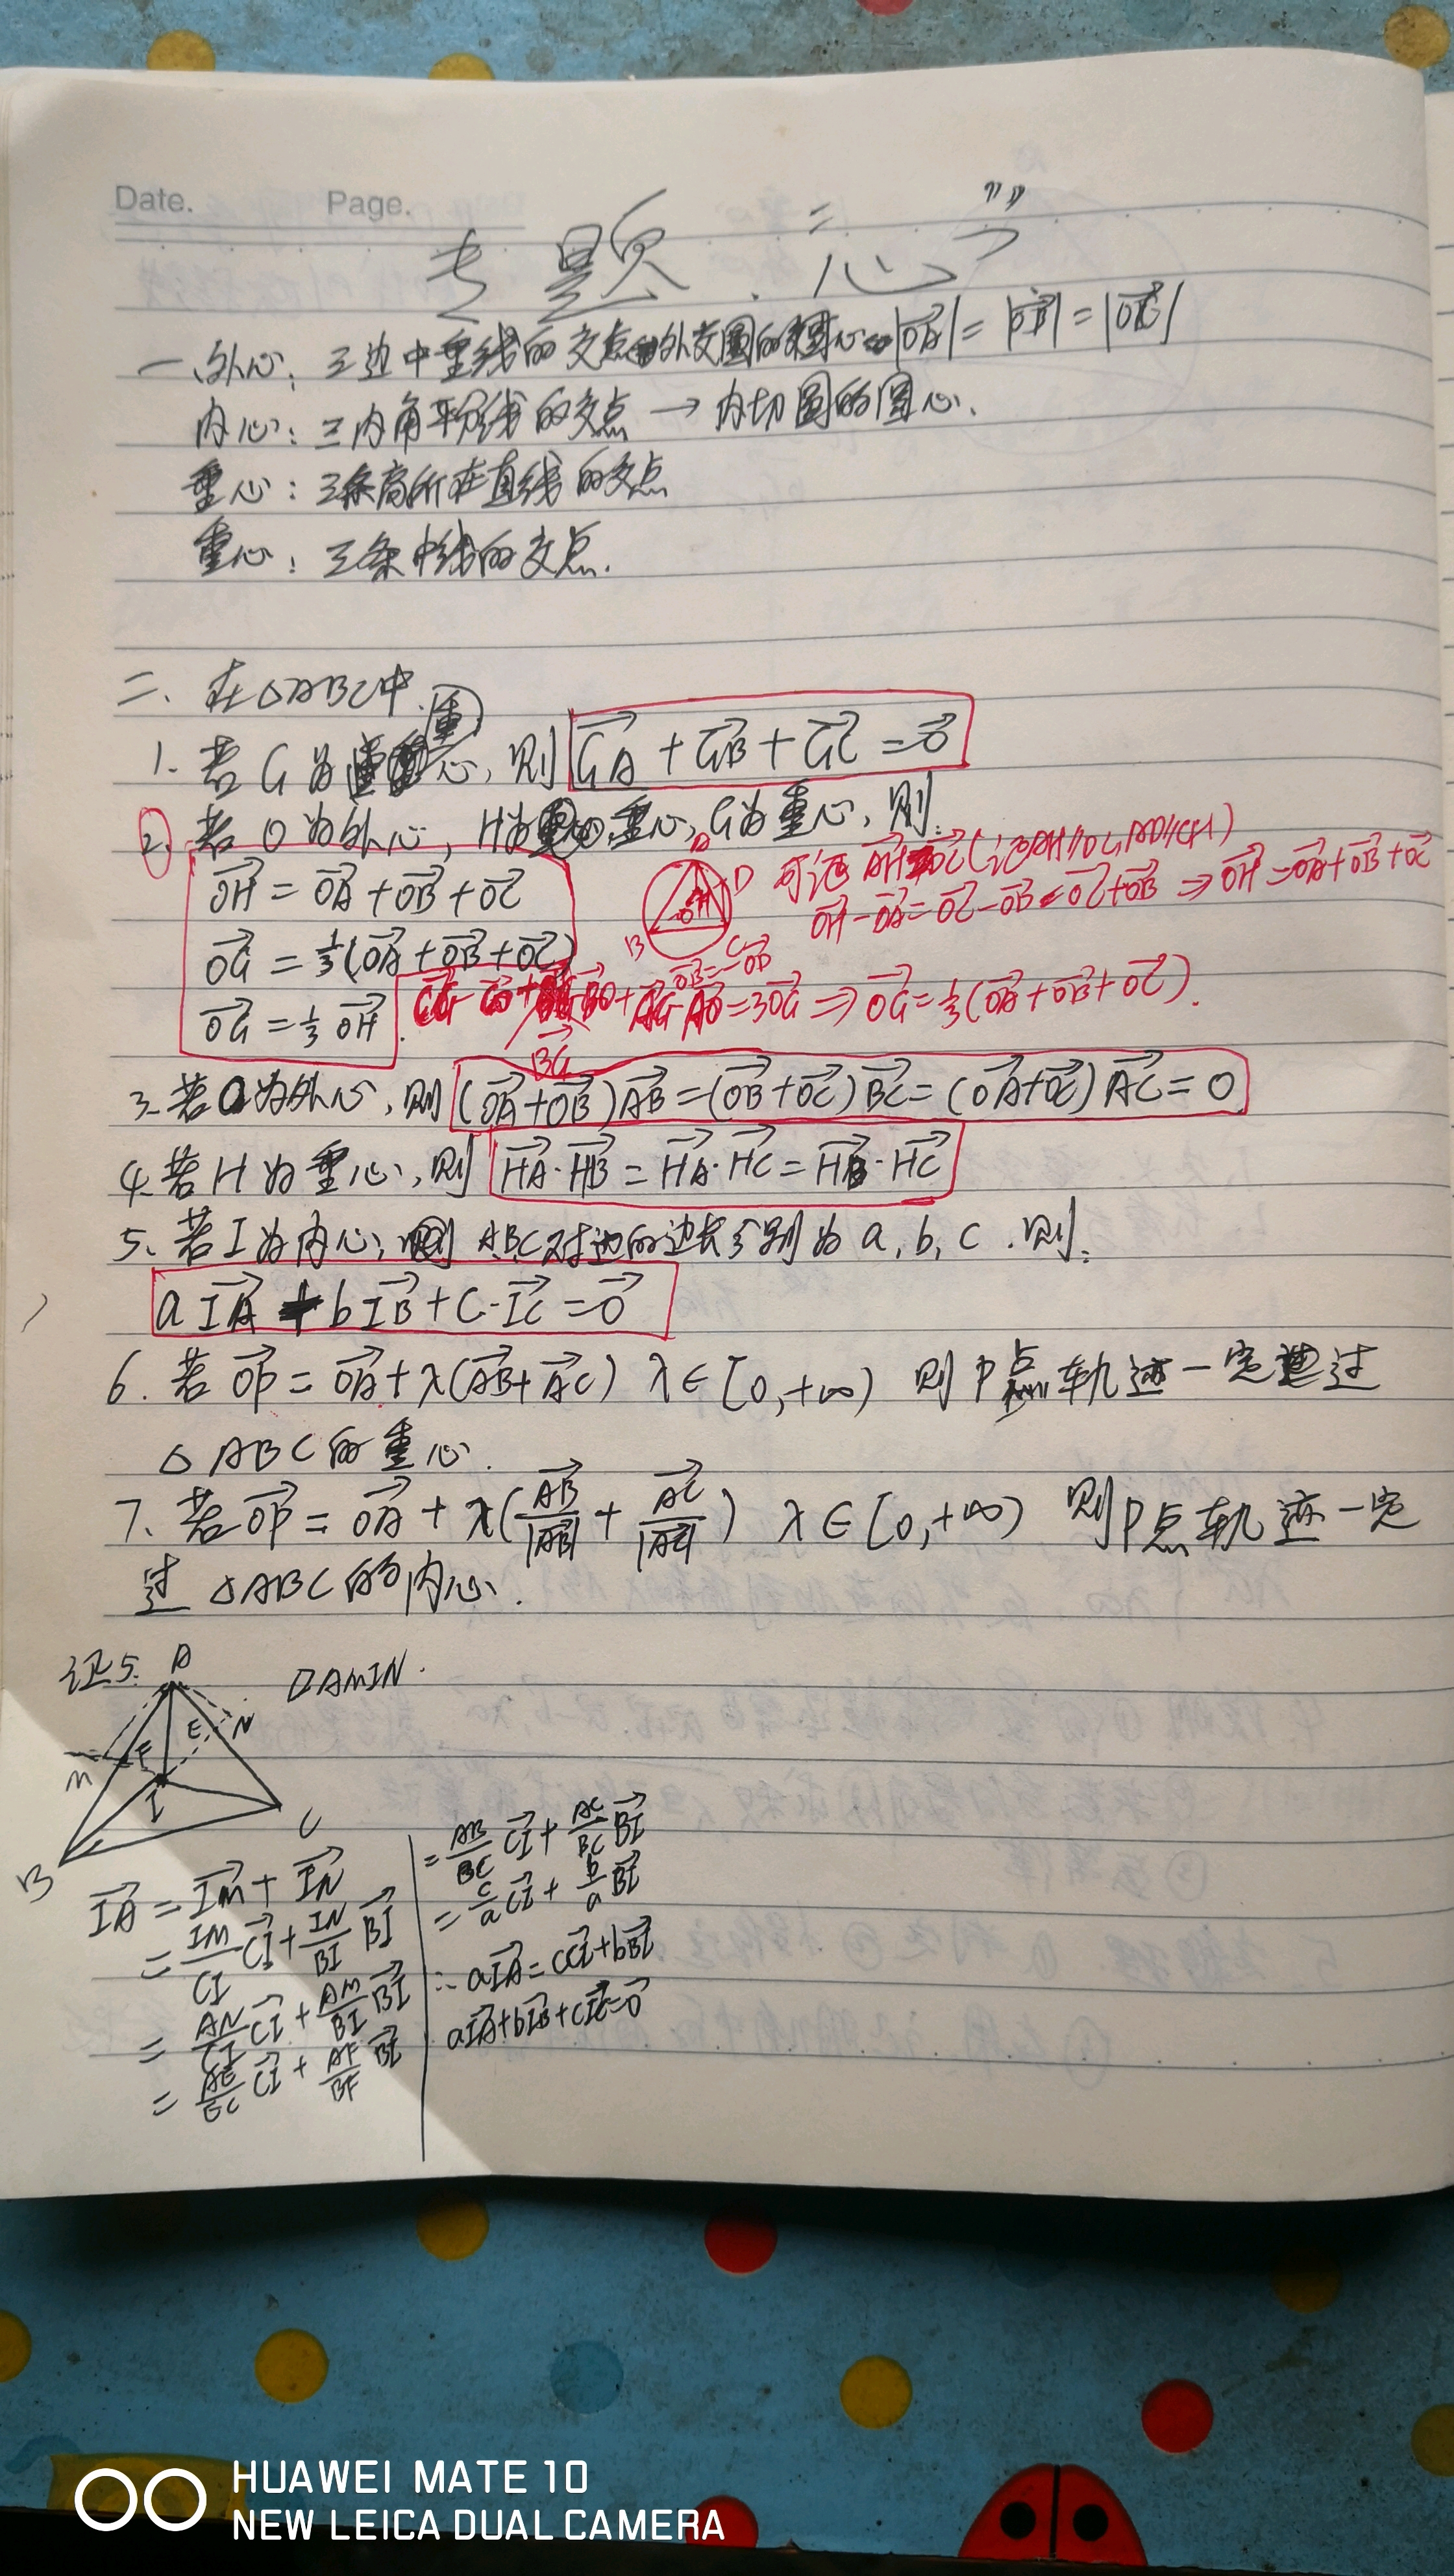 Date. Page.
专题:“心”
一、外心:三边中垂线的交点 外交圆的圆心 |OA|=|OB|=|OC|
内心:三内角平分线的交点→内切圆的圆心.
垂心:三条高所在直线的交点
重心:三条中线的交点.
二、在△ABC中.
1. 若G为重心,则 GA+GB+GC=0
2. 若O为外心,H为垂心,G为重心,则:
OH=OA+OB+OC
OG=1/3(OA+OB+OC)
OG=1/3 OH
A D O H B C
可证 AH=DC(证AH//DC,AD//CH)
OH-OA=OC-OD=OC+OB⇒OH=OA+OB+OC
OB=-OD
BG
AG-AO=3OG⇒OG=1/3(OA+OB+OC).
3. 若O为外心,则(OA+OB)AB=(OB+OC)BC=(OA+OC)AC=0
4. 若H为垂心,则 HA·HB=HA·HC=HB·HC
5. 若I为内心, ABC对边的边长分别为a,b,c.则:
aIA+bIB+c·IC=0
6. 若OP=OA+λ(AB+AC) λ∈[0,+∞) 则P点轨迹一定过
△ABC的重心.
7. 若OP=OA+λ(AB/|AB|+AC/|AC|) λ∈[0,+∞) 则P点轨迹一定
过△ABC的内心.
证5. ▱AMIN.
A E N M F I C B
IA=IM+IN
=IM/CI CI+IN/BI BI
=AN/CI CI+AM/BI BI
=AE/EC CI+AF/BF BI
=AB/BC CI+AC/BC BI
=c/a CI+b/a BI
∴aIA=cCI+bBI
aIA+bIB+cIC=0
HUAWEI MATE 10
NEW LEICA DUAL CAMERA